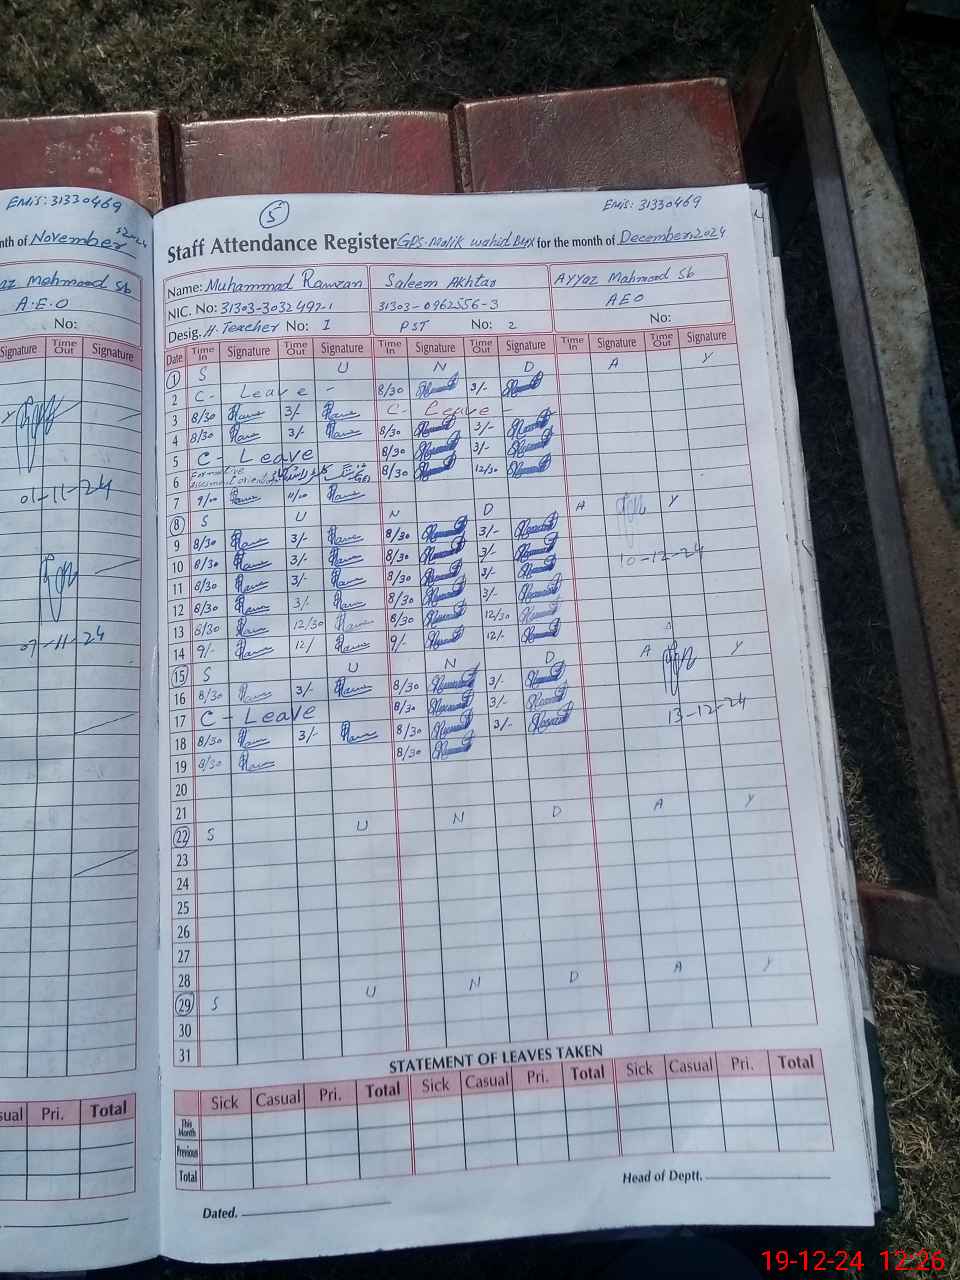 EMIS: 31330469
nth of November 2024
az Mehmood Sb
A.E.O
No:
Signature Time Out Signature
01-11-24
07-11-24
sual Pri. Total
5
EMIS: 31330469
Staff Attendance Register GPS. Malik Wahid Bux for the month of December, 2024
Name: Muhammad Ramzan Saleem Akhtar Ayyaz Mahmood Sb
NIC. No: 31303-3032497-1 31303-0962556-3 AEO
Desig. H. Teacher No: 1 PST No: 2 No:
Date Time In Signature Time Out Signature Time In Signature Time Out Signature Time In Signature Time Out Signature
1 S U N D A Y
2 C- Leave - 8/30 3/-
3 8/30 3/- C- Leave -
4 8/30 3/- 8/30 3/-
5 C - Leave 8/30 3/-
6 8/30 12/30
7 9/00 11/00
8 S U N D A Y
9 8/30 3/- 8/30 3/-
10 8/30 3/- 8/30 3/- 10-12-24
11 8/30 3/- 8/30 3/-
12 8/30 3/- 8/30 3/-
13 8/30 12/30 8/30 12/30
14 9/- 12/ 9/- 12/-
15 S U N D A Y
16 8/30 3/- 8/30 3/-
17 C - Leave 8/30 3/- 13-12-24
18 8/30 3/- 8/30 3/-
19 8/30 8/30
20
21
22 S U N D A Y
23
24
25
26
27
28
29 S U N D A Y
30
31
STATEMENT OF LEAVES TAKEN
Sick Casual Pri. Total Sick Casual Pri. Total Sick Casual Pri. Total
This Month
Previous
Total
Head of Deptt.
Dated.
19-12-24 12:26